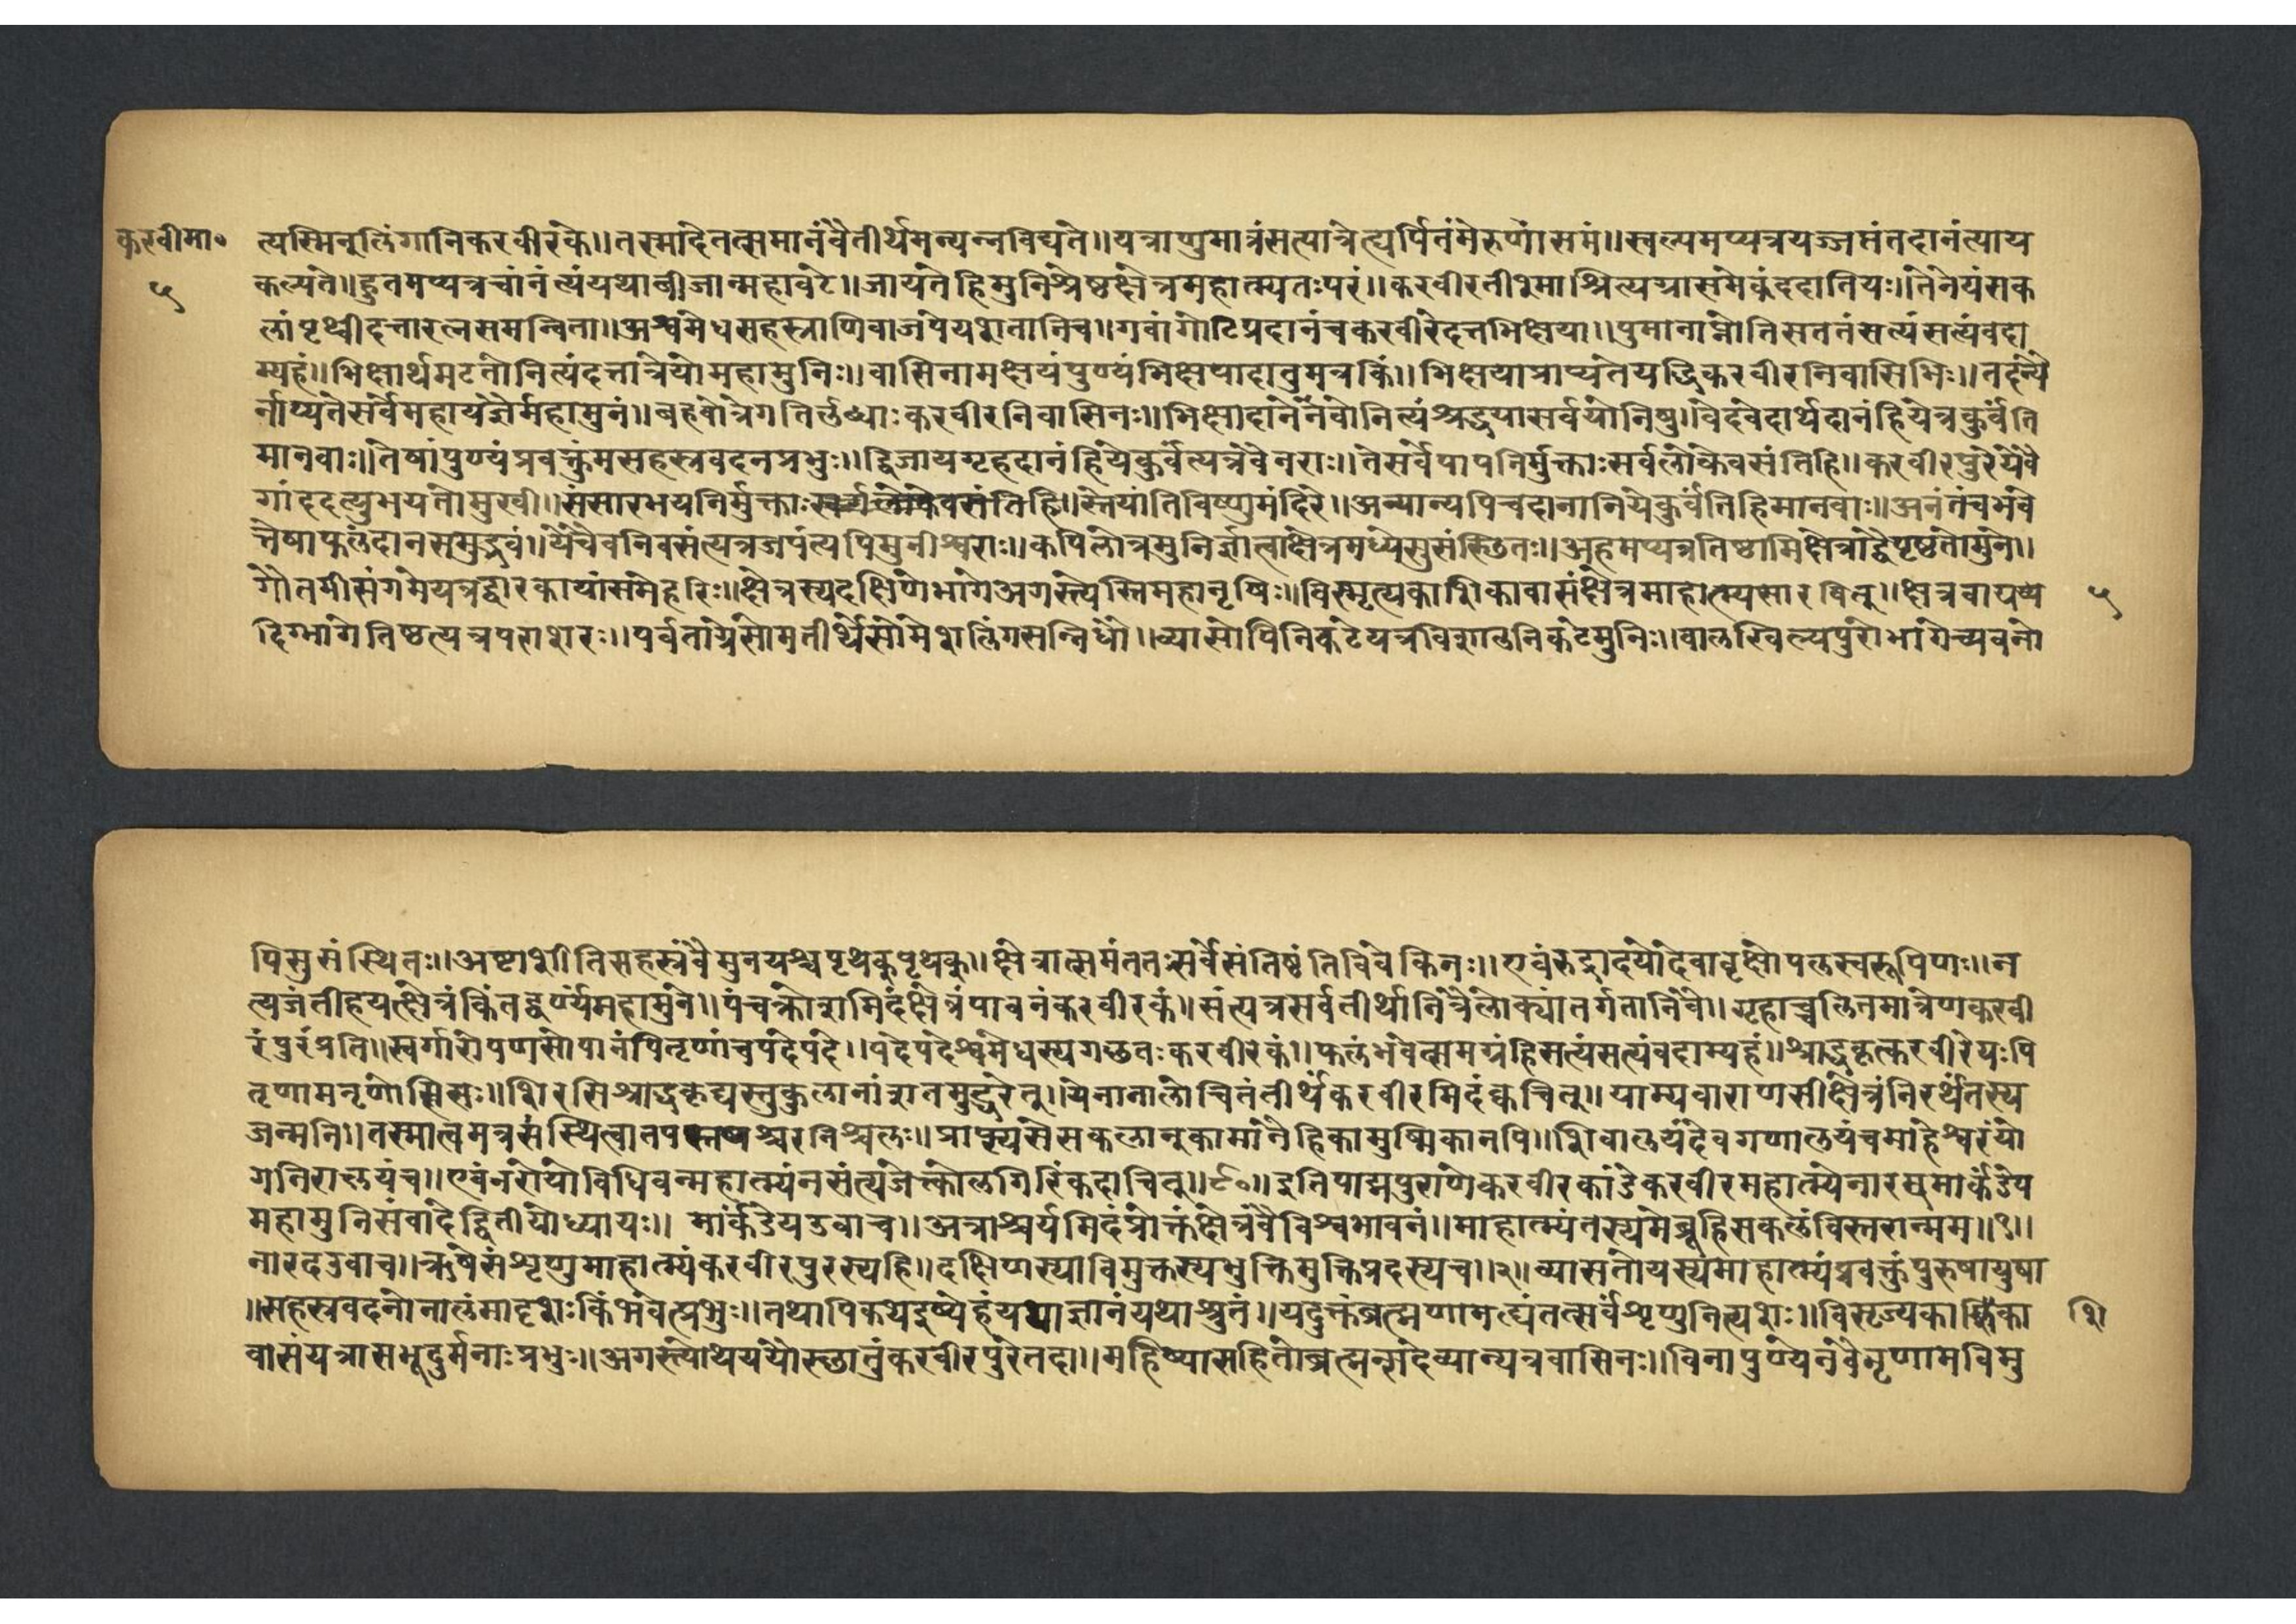 करवीमा०
५
त्यस्मिन्लिंगानिकरवीरके॥तस्मादेतत्समानंवैतीर्थमन्यन्नविद्यते॥यत्राणुमात्रंसत्पात्रेत्यर्पितंमेरुणासमं॥स्वल्पमप्यत्रयज्जप्तंतदानंत्याय
कल्पते॥हुतमप्यत्रचानंत्यंयथाबीजान्महावटे॥जायतेहिमुनिश्रेष्ठक्षेत्रमहात्म्यतःपरं॥करवीरतीरमाश्रित्यग्रासमेकंददातियः॥तेनेयंसक
लांपृथ्वीदत्तारत्नसमन्विता॥अश्वमेधसहस्त्राणिवाजपेयशतानिच॥गवांगोटिप्रदानंचकरवीरेदत्तभिक्षया॥पुमानाप्नोतिसततंसत्यंसत्यंवदा
म्यहं॥भिक्षार्थमटतोनित्यंदत्तात्रेयोमहामुनिः॥वासिनामक्षयंपुण्यंभिक्षपादातुमत्रकिं॥भिक्षयाप्राप्यतेयद्धिकरवीरनिवासिभिः॥तदन्यै
र्नाप्यतेसर्वैमहायज्ञैर्महामुनं॥बहवोत्रेगतिर्लब्धाःकरवीरनिवासिनः॥भिक्षादानेनैवोनित्यंश्रद्धयासर्वयोनिषु।वेदवेदार्थदानंहियेत्रकुर्वंति
मानवाः॥तेषांपुण्यंप्रवक्तुंमसहस्त्रवदनप्रभुः॥द्विजायगृहदानंहियेकुर्वंत्यत्रवैनराः॥तेसर्वेपापनिर्मुक्ताःसर्वलोकेवसंतिहि॥करवीरपुरेयेवै
गांददत्युभयतोमुखी॥संसारभयनिर्मुक्ताःस्वर्गलोकेवसंतिहि॥स्तेयांतिविष्णुमंदिरे॥अन्यान्यपिचदानानियेकुर्वंतिहिमानवाः॥अनंतंचभवे
त्तेषाफलंदानसमुद्भवं॥येचैवनिवसंत्यत्रजपंत्यपिमुनीश्वराः॥कपिलोत्रमुनिर्ज्ञात्वाक्षेत्रमध्येसुसंस्छितः॥अहमप्यत्रतिष्ठामिक्षेत्राद्वैपृष्ठतोर्मुने॥
गौतमीसंगमेयत्रद्वारकायांसमेहरिः॥क्षेत्रस्यदक्षिणेभागेअगस्त्येस्तिमहानृषिः॥विस्मृत्यकाशिकावासंक्षेत्रमाहात्म्यसारवित्॥क्षेत्रवायव्य
५
दिग्भागेतिष्ठत्यत्रपराशरः॥पर्वताग्रेसोमतीर्थेसोमेशलिंगसन्निधौ॥व्यासोपिनिकटेयत्रविशालनिकटेमुनिः॥वालखिल्यपुरोभागेच्यवनो
पिसुसंस्थितः॥अष्टाशीतिसहस्त्रंवैमुनयश्चपृथक्पृथक्॥क्षेत्रात्समंततःसर्वेसंतिष्ठंतिविवेकिनः॥एवंरुद्रादयोदेवावृक्षोपलस्वरूपिणः॥न
त्यजंतीहयत्क्षेत्रंकिंतद्वर्ण्यमहामुने॥पंचक्रोशमिदंक्षेत्रंपावनंकरवीरकं॥संत्यत्रसर्वतीर्थानित्रैलोक्यांतर्गतानिवै॥गृहाच्चलितमात्रेणकरवी
रंपुरंप्रति॥स्वर्गारोपणसोपानंपितृणांचपदेपदे॥पदेपदेश्वमेधस्यगछतःकरवीरकं॥फलंभवेत्समग्रंहिसत्यंसत्यंवदाम्यहं॥श्राद्धकृत्करवीरेयःपि
तृणामनृणोस्तिसः॥शिरसिश्राद्धकृद्यस्तुकुलानांशतमुद्धरेत्॥येनानालोचितंतीर्थंकरवीरमिदंक्वचित्॥याम्यवाराणसीक्षेत्रंनिरर्थंतस्य
जन्मनि॥तस्मात्वमत्रसंस्थित्वातपस्तपश्चरनिश्चलः॥प्राप्स्यसेसकलान्कामानैहिकामुष्मिकानपि॥शिवालयंदेवगणालयंचमाहेश्वरंयो
गनिरालयंच॥एवंनरोयोविधिवन्महात्म्यंनसंत्यजेत्कोलगिरिंकदाचित्॥८०॥इतिपाद्मपुराणेकरवीरकांडेकरवीरमहात्म्येनारदमार्कंडेय
महामुनिसंवादेद्वितीयोध्यायः॥ मार्कंडेयउवाच॥अत्राश्चर्यमिदंप्रोक्तंक्षेत्रंवैविश्वभावनं॥माहात्म्यंतस्यमेब्रूहिसकलंविस्तरान्मम॥१॥
नारदउवाच॥ऋषेसंशृणुमाहात्म्यंकरवीरपुरस्यहि॥दक्षिणस्याविमुक्तस्यभुक्तिमुक्तिप्रदस्यच॥२॥व्यासतोयस्यमाहात्म्यंप्रवक्तुंपुरुषायुषा
॥सहस्त्रवदनोनालंमादृशःकिंभवेत्प्रभुः॥तथापिकथइष्येहंयथाज्ञानंयथाश्रुतं॥यदुक्तंब्रह्मणामह्यंतत्सर्वंशृणुनित्यशः॥विसृज्यकाशिका
शि
वासंयत्रासभूदुर्मनाःप्रभुः॥अगस्त्योथययौस्छातुंकरवीरपुरेतदा॥महिष्यासहितोब्रह्मन्सदेव्यान्यत्रवासिनः॥विनापुण्येनवैनृणामविमु